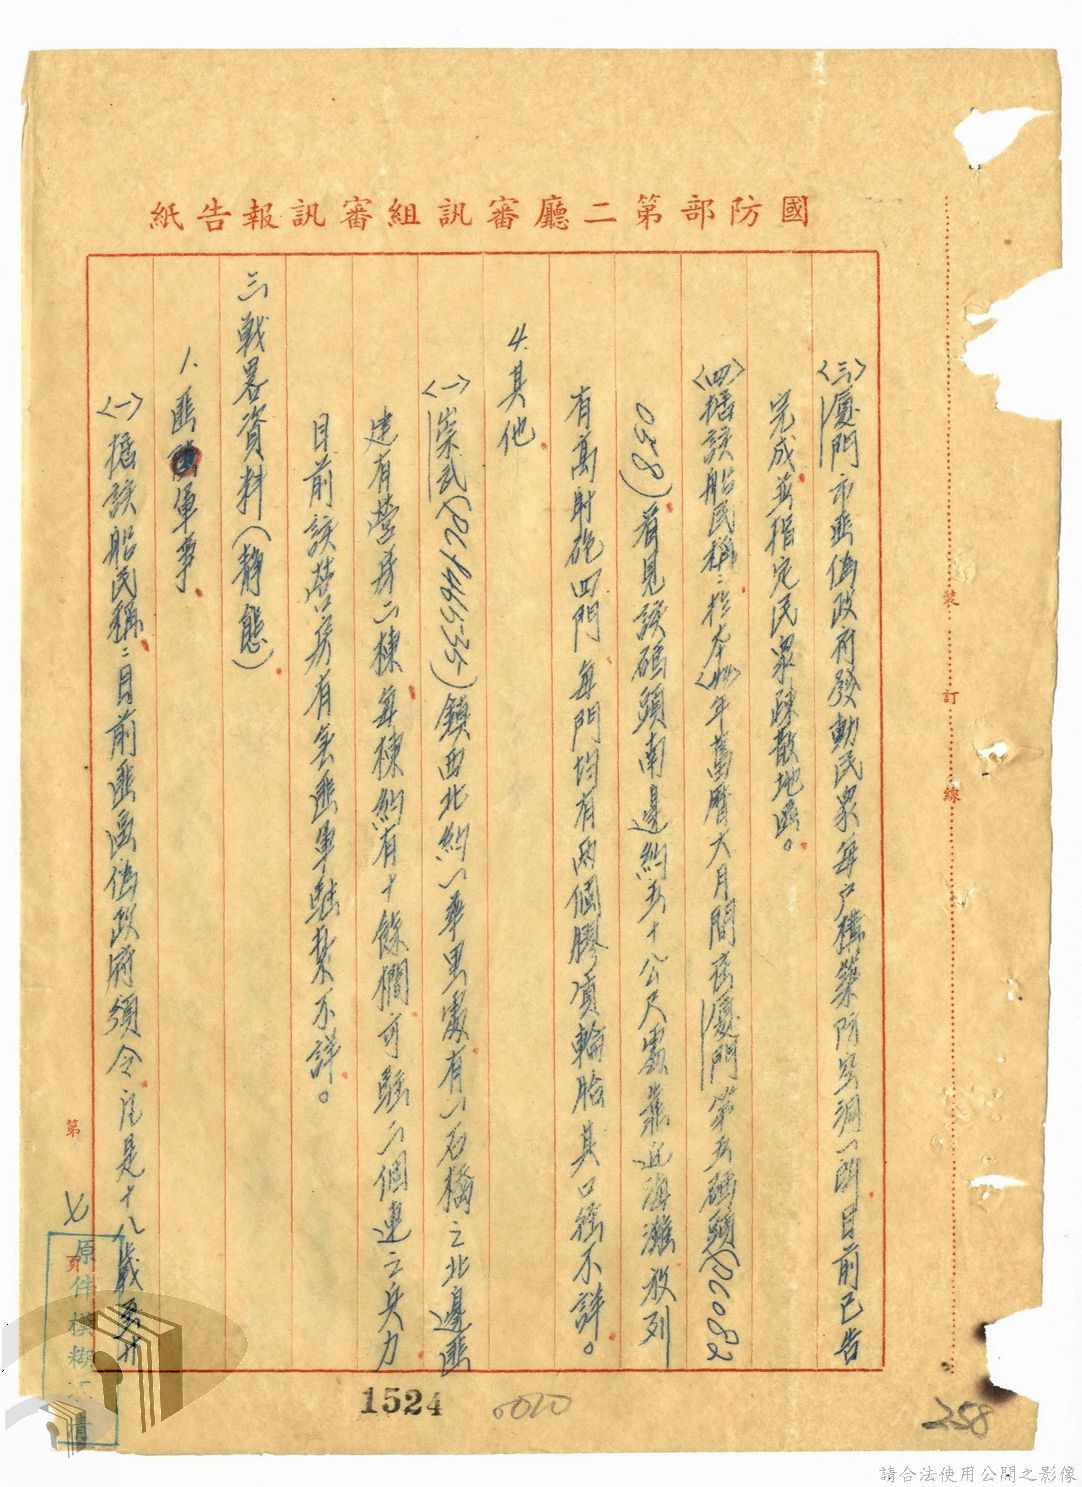 國防部第二廳審訊組審訊報告紙
〈三〉廈門市匪偽政府發動民眾每戶構築防空洞一所目前已告
完成並指定民眾疎散地區。
〈四〉據該船民稱：於本〈㊃〉年舊曆六月間在廈門第五碼頭(PC0882
058)看見該碼頭南邊約五十公尺處靠近海灘放列
有高射砲四門每門均有兩個膠質輪胎其口徑不詳。
4.其他
〈一〉崇武(PC8465-35)鎮西北約一華里處有一石橋之北邊匪
建有營房二棟每棟約有十餘櫊可駐一個連之兵力
目前該營房有無匪軍駐紮不詳。
三、戰畧資料(靜態)
1.匪軍事
〈一〉據該船民稱：目前匪區偽政府頒令凡是十八歲至廿
裝
訂
線
第
七
頁
原件模糊不清
1524
0010
258
請合法使用公開之影像